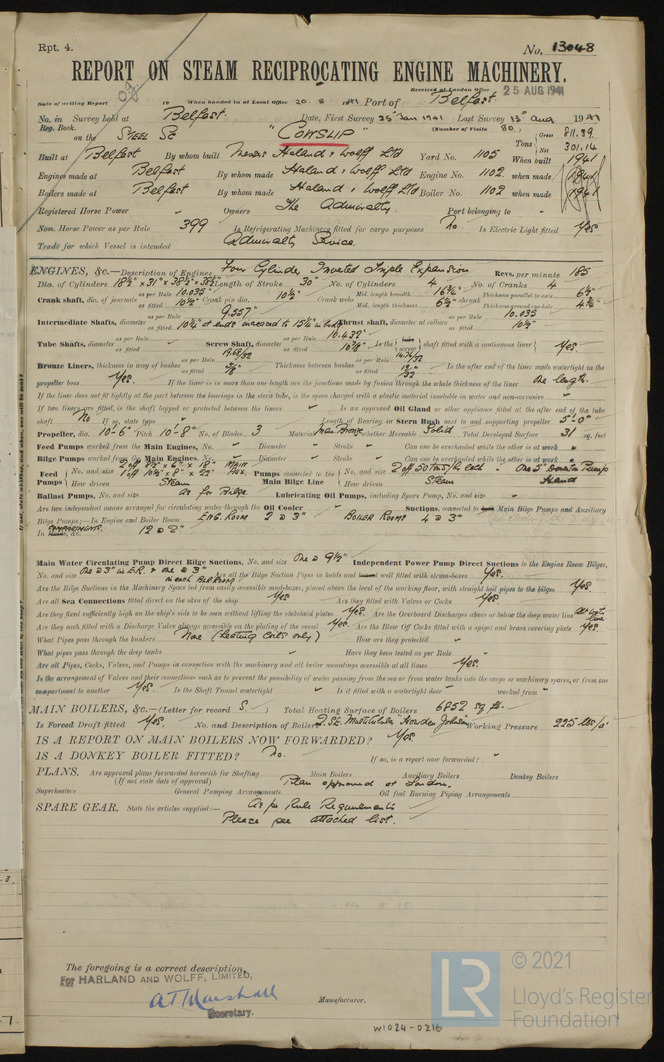 Rpt. 4.
No. 13048
REPORT ON STEAM RECIPROCATING ENGINE MACHINERY.
Received at London Office 25 AUG 1941
Date of writing Report 19 When handed in at Local Office 20. 8 1941 Port of Belfast.
No. in Reg. Book. Survey held at Belfast. Date, First Survey 25th Jan 1941 Last Survey 13th Aug 1941
(Number of Visits 80)
on the STEEL Sc "COWSLIP" Tons Gross 811.39 Net 301.14
Built at Belfast By whom built Messrs Harland & Wolff Ltd Yard No. 1105 When built 1941
Engines made at Belfast By whom made Harland & Wolff Ltd Engine No. 1102 when made 1941
Boilers made at Belfast By whom made Harland & Wolff Ltd Boiler No. 1102 when made 1941
Registered Horse Power Owners The Admiralty. Port belonging to
Nom. Horse Power as per Rule 399 Is Refrigerating Machinery fitted for cargo purposes No. Is Electric Light fitted Yes
Trade for which Vessel is intended Admiralty Service.
ENGINES, &c.—Description of Engines Four Cylinder Inverted Triple Expansion Revs. per minute 185
Dia. of Cylinders 18½" x 31" x 38½" x 38½" Length of Stroke 30" No. of Cylinders 4 No. of Cranks 4
Crank shaft, dia. of journals as per Rule 10.035" as fitted 10½" Crank pin dia. 10½" Crank webs Mid. length breadth 16¾" Mid. length thickness 6½" shrunk Thickness parallel to axis 6½" Thickness around eye-hole 4¾"
Intermediate Shafts, diameter as per Rule 9.557" as fitted 10¼" at ends increased to 15¼" in body Thrust shaft, diameter at collars as per Rule 10.035 as fitted 10½"
Tube Shafts, diameter as per Rule as fitted Screw Shaft, diameter as per Rule 10.432" as fitted 10⅞" Is the screw shaft fitted with a continuous liner Yes.
Bronze Liners, thickness in way of bushes as per Rule as fitted Thickness between bushes as per Rule as fitted Is the after end of the liner made watertight in the
propeller boss Yes. If the liner is in more than one length are the junctions made by fusion through the whole thickness of the liner One length.
If the liner does not fit tightly at the part between the bearings in the stern tube, is the space charged with a plastic material insoluble in water and non-corrosive
If two liners are fitted, is the shaft lapped or protected between the liners Is an approved Oil Gland or other appliance fitted at the after end of the tube
shaft No If so, state type Length of Bearing in Stern Bush next to and supporting propeller 5'-0"
Propeller, dia. 10-6" Pitch 10'-8" No. of Blades 3 Material Man. Bronze whether Moveable Solid Total Developed Surface 31 sq. feet
Feed Pumps worked from the Main Engines, No. Diameter Stroke Can one be overhauled while the other is at work
Bilge Pumps worked from the Main Engines, No. Diameter Stroke Can one be overhauled while the other is at work
Feed Pumps No. and size How driven Steam Pumps connected to the Main Bilge Line No. and size 2 off 50 Tons/Hr each - One 5" Downton Pump How driven Steam Hand
Ballast Pumps, No. and size As for Bilge. Lubricating Oil Pumps, including Spare Pump, No. and size
Are two independent means arranged for circulating water through the Oil Cooler Suctions, connected to both Main Bilge Pumps and Auxiliary
Bilge Pumps;—In Engine and Boiler Room ENG. ROOM 2 @ 3" BOILER ROOMS 4 @ 3"
In COMPARTMENTS, &c. 12 @ 2"
Main Water Circulating Pump Direct Bilge Suctions, No. and size One @ 9½" Independent Power Pump Direct Suctions to the Engine Room Bilges,
No. and size One @ 3" in E.R. & One @ 3" in each Blr Room. Are all the Bilge Suction Pipes in holds and tunnel well fitted with strum-boxes Yes.
Are the Bilge Suctions in the Machinery Space led from easily accessible mud-boxes, placed above the level of the working floor, with straight tail pipes to the bilges Yes.
Are all Sea Connections fitted direct on the skin of the ship Yes Are they fitted with Valves or Cocks Yes.
Are they fixed sufficiently high on the ship's side to be seen without lifting the stokehold plates Yes. Are the Overboard Discharges above or below the deep water line
Are they each fitted with a Discharge Valve always accessible on the plating of the vessel Yes. Are the Blow Off Cocks fitted with a spigot and brass covering plate Yes.
What Pipes pass through the bunkers None (Heating coils only) How are they protected
What pipes pass through the deep tanks Have they been tested as per Rule
Are all Pipes, Cocks, Valves, and Pumps in connexion with the machinery and all boiler mountings accessible at all times Yes.
Is the arrangement of Valves and their connections such as to prevent the possibility of water passing from the sea or from water tanks into the cargo or machinery spaces, or from one
compartment to another Yes. Is the Shaft Tunnel watertight Is it fitted with a watertight door worked from
MAIN BOILERS, &c.—(Letter for record S.) Total Heating Surface of Boilers 6852 sq ft.
Is Forced Draft fitted Yes. No. and Description of Boilers 2 SE. Multitubular Howden Johnson Working Pressure 225 lbs/□"
IS A REPORT ON MAIN BOILERS NOW FORWARDED? Yes
IS A DONKEY BOILER FITTED? No. If so, is a report now forwarded?
PLANS. Are approved plans forwarded herewith for Shafting Main Boilers Auxiliary Boilers Donkey Boilers
(If not state date of approval) Plans approved at London.
Superheaters General Pumping Arrangements Oil fuel Burning Piping Arrangements
SPARE GEAR. State the articles supplied:— As per Rule Requirements
Please see attached list.
The foregoing is a correct description,
For HARLAND AND WOLFF, LIMITED,
A T Marshall
Secretary. Manufacturer.
W1024-0216
LR
© 2021
Lloyd's Register
Foundation